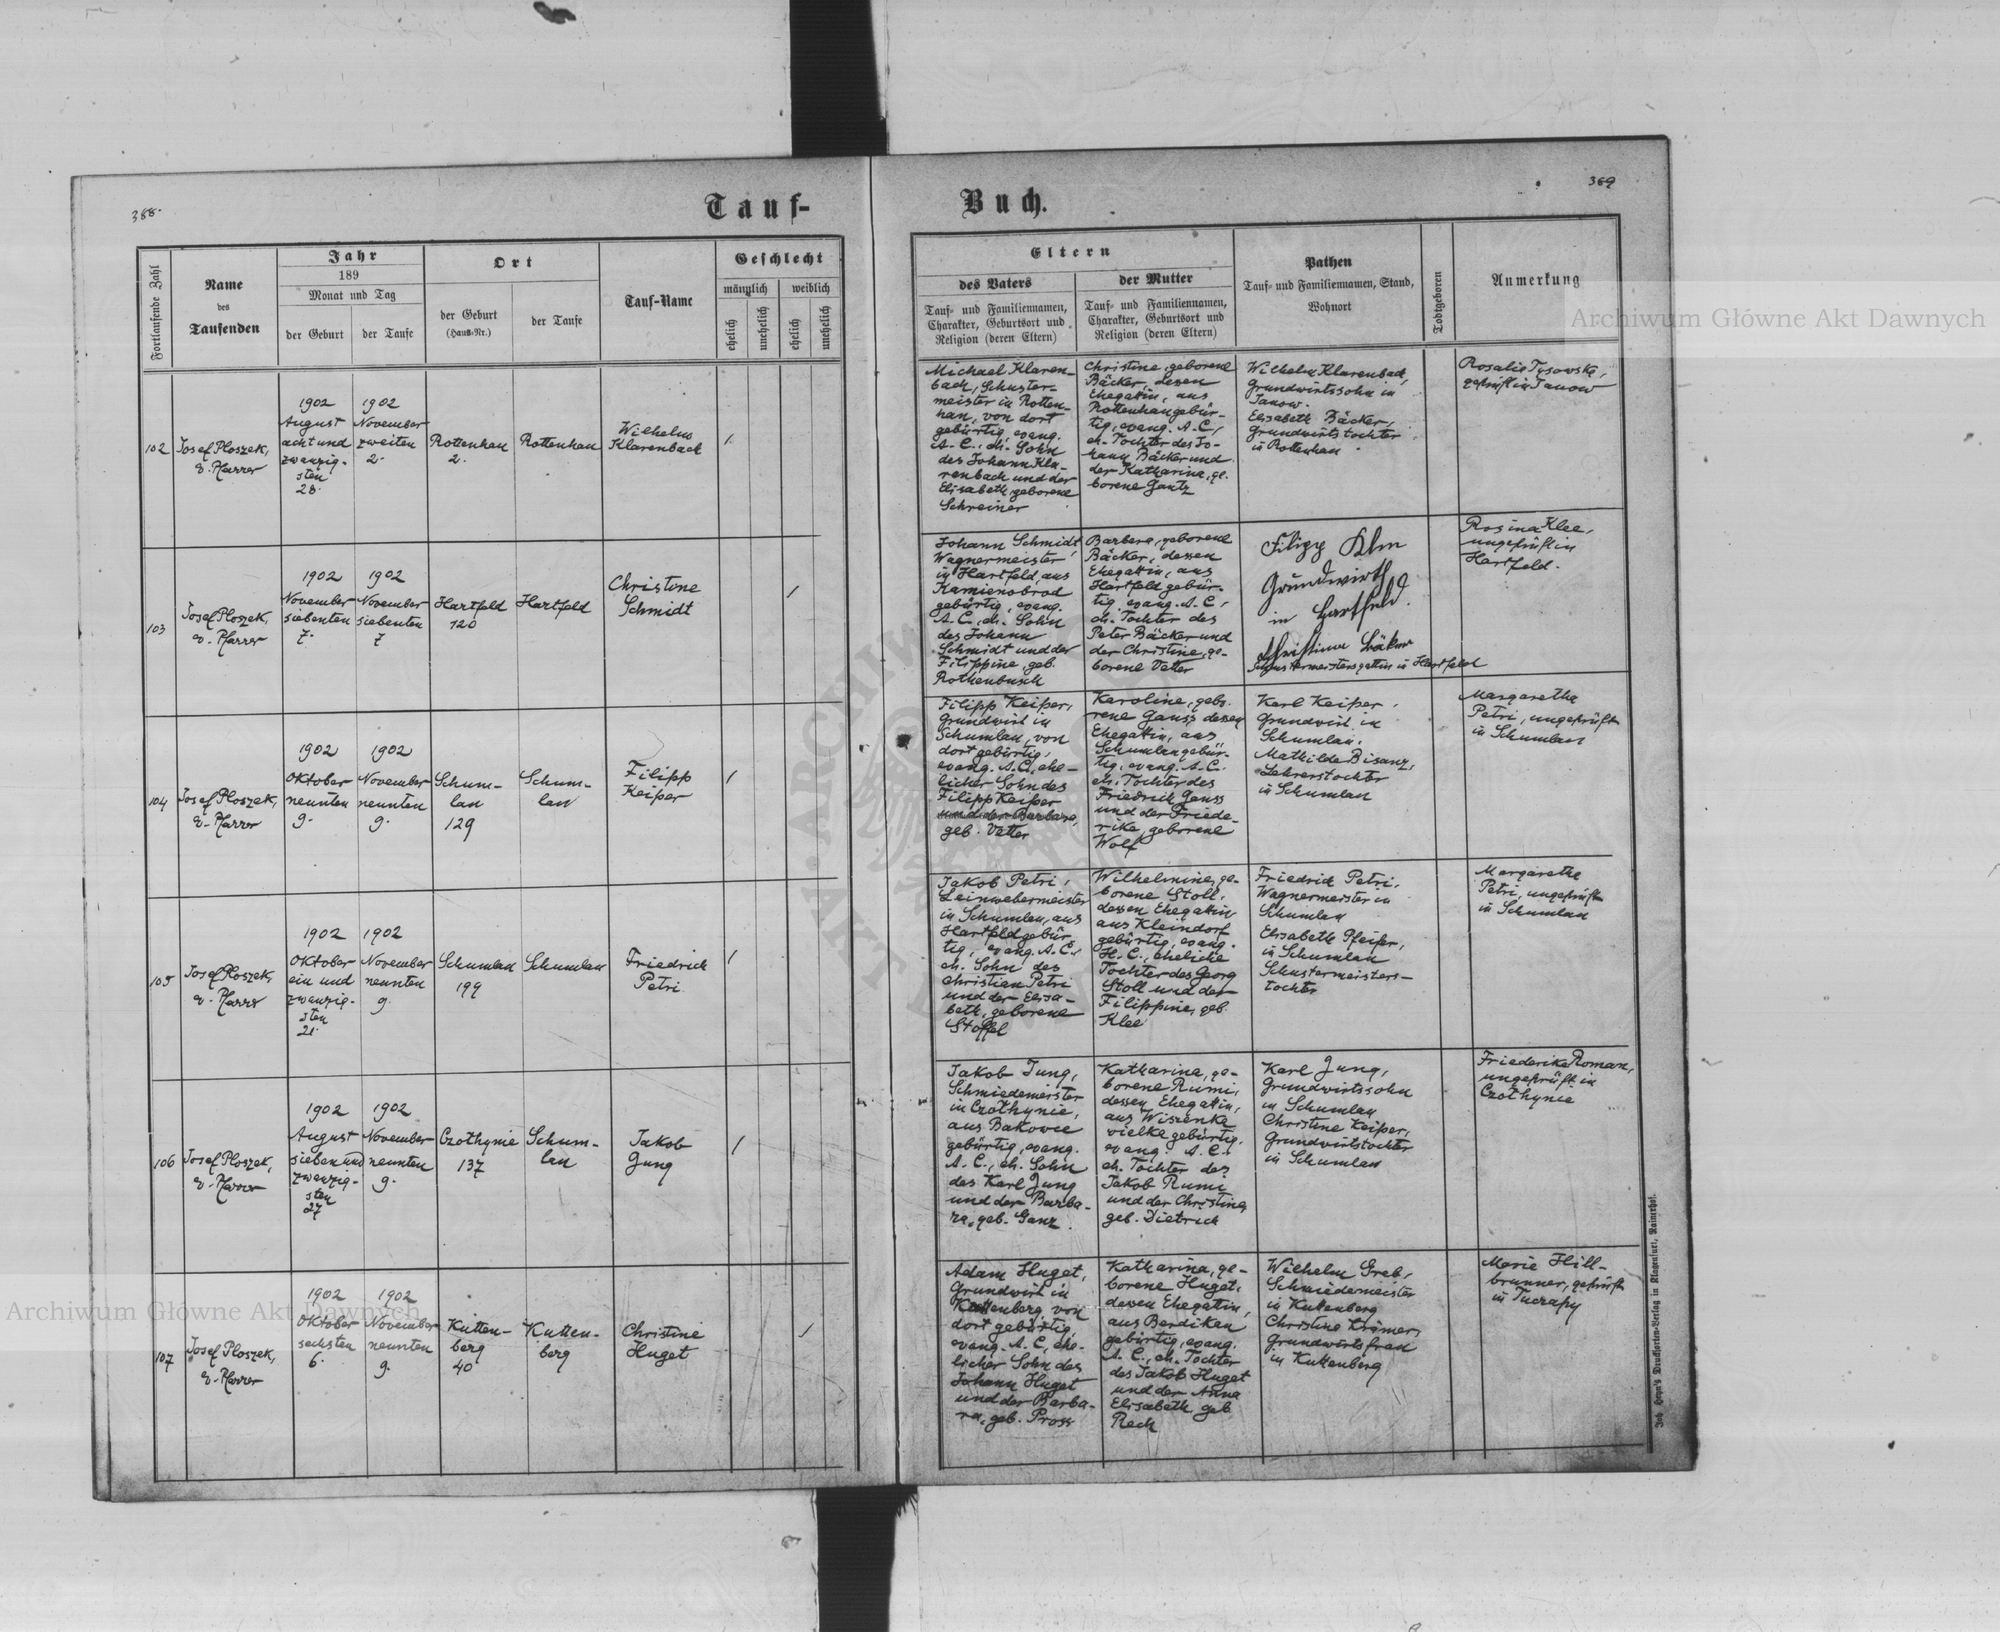 388.
Tauf-
Fortlaufende Zahl
Name
des
Taufenden
Jahr
189
Monat und Tag
der Geburt
der Taufe
Ort
der Geburt
(Haus-Nr.)
der Taufe
Tauf-Name
Geschlecht
männlich
weiblich
ehelich
unehelich
ehelich
unehelich
102
Josef Ploszek,
e. Pfarrer
1902
August
acht und
zwanzig-
sten
28.
1902
November
zweiten
2.
Rottenhan
2.
Rottenhan
Wilhelm
Klarenbach
103
Josef Ploszek,
e. Pfarrer
1902
November
siebenten
7.
1902
November
siebenten
7
Hartfeld
120
Hartfeld
Christine
Schmidt
104
Josef Ploszek,
e. Pfarrer
1902
Oktober
neunten
9.
1902
November
neunten
9.
Schum-
lau
129
Schum-
lau
Filipp
Keiper
105
Josef Ploszek,
e. Pfarrer
1902
Oktober
ein und
zwanzig-
sten
21.
1902
November
neunten
9.
Schumlau
199
Schumlau
Friedrich
Petri
106
Josef Ploszek,
e. Pfarrer
1902
August
sieben und
zwanzig-
sten
27
1902
November
neunten
9.
Czothynie
137
Schum-
lau
Jakob
Jung
107
Josef Ploszek,
e. Pfarrer
1902
Oktober
sechsten
6.
1902
November
neunten
9.
Kutten-
berg
40
Kutten-
berg
Christine
Huget
Buch.
389
Eltern
des Vaters
Tauf- und Familiennamen,
Charakter, Geburtsort und
Religion (deren Eltern)
der Mutter
Tauf- und Familiennamen,
Charakter, Geburtsort und
Religion (deren Eltern)
Pathen
Tauf- und Familiennamen, Stand,
Wohnort
Todtgeboren
Anmerkung
Michael Klaren-
bach, Schuster-
meister in Rotten-
han, von dort
gebürtig, evang.
A. C., eh. Sohn
des Johann Kla-
renbach und der
Elisabeth, geborene
Schreiner
Christine, geborene
Bäcker, dessen
Ehegattin, aus
Rottenhan gebür-
tig, evang. A. C.,
eh. Tochter des Jo-
hann Bäcker und
der Katharina, ge-
borene Gantz
Wilhelm Klarenbach,
Grundwirtssohn in
Janow.
Elisabeth Bäcker,
Grundwirtstochter
in Rottenhan
Rosalie Tysowska,
geprüft in Janow
Johann Schmidt,
Wagnermeister
in Hartfeld, aus
Kamienobrod
gebürtig, evang.
A. C., eh. Sohn
des Johann
Schmidt und der
Filippine, geb.
Rothenbusch
Barbara, geborene
Bäcker, dessen
Ehegattin, aus
Hartfeld gebür-
tig, evang. A. C.,
eh. Tochter des
Peter Bäcker und
der Christine, ge-
borene Vetter
Filipp
Grundwirth
in Hartfeld.
Christine Bäker
Schustermeistersgattin in Hartfeld
Rosina Klee,
ungeprüft in
Hartfeld.
Filipp Keiper,
Grundwirt in
Schumlau, von
dort gebürtig,
evang. A. C., ehe-
licher Sohn des
Filipp Keiper
und der Barbara,
geb. Vetter
Karoline, gebo-
rene Gauss dessen
Ehegattin, aus
Schumlau gebür-
tig, evang. A. C.
eh. Tochter des
Friedrich Gauss
und der Friede-
rike, geborene
Wolf
Karl Keiper,
Grundwirt in
Schumlau.
Mathilde Bisanz,
Lehrerstochter
in Schumlau
Margaretha
Petri, ungeprüft
in Schumlau
Jakob Petri,
Leinwebermeister
in Schumlau, aus
Hartfeld gebür-
tig, evang. A. C.,
eh. Sohn des
Christian Petri
und der Elisa-
beth, geborene
Stoffel
Wilhelmine, ge-
borene Stoll,
dessen Ehegattin
aus Kleindorf
gebürtig, evang.
H. C., eheliche
Tochter des Georg
Stoll und der
Filippine, geb.
Klee
Friedrich Petri,
Wagnermeister in
Schumlau
Elisabeth Pfeifer,
in Schumlau
Schustermeisters-
tochter
Margaretha
Petri, ungeprüft
in Schumlau
Jakob Jung,
Schmiedemeister
in Czothynie,
aus Bakowce
gebürtig, evang.
A. C., eh. Sohn
des Karl Jung
und der Barba-
ra, geb. Ganz
Katharina, ge-
borene Rumi,
dessen Ehegattin,
aus Wiszenka
wielka gebürtig,
evang. A. C.
eh. Tochter des
Jakob Rumi
und der Christine,
geb. Dietrich
Karl Jung,
Grundwirtssohn
in Schumlau
Christine Keiper,
Grundwirtstochter
in Schumlau
Friederike Roman,
ungeprüft in
Czothynie
Adam Huget,
Grundwirt in
Kuttenberg, von
dort gebürtig,
evang. A. C., ehe-
licher Sohn des
Johann Huget
und der Barba-
ra, geb. Pross
Katharina, ge-
borene Huget,
dessen Ehegattin,
aus Berdikau
gebürtig, evang.
A. C., eh. Tochter
des Jakob Huget
und der Anna
Elisabeth, geb.
Rech
Wilhelm Greb,
Schmiedemeister
in Kuttenberg
Christine Krämer,
Grundwirtsfrau
in Kuttenberg
Marie Hill-
brunner, geprüft
in Tuczapy
Joh. Heyn's Drucksorten-Verlag in Klagenfurt, Rainerhof.
Archiwum Główne Akt Dawnych
Archiwum Główne Akt Dawnych